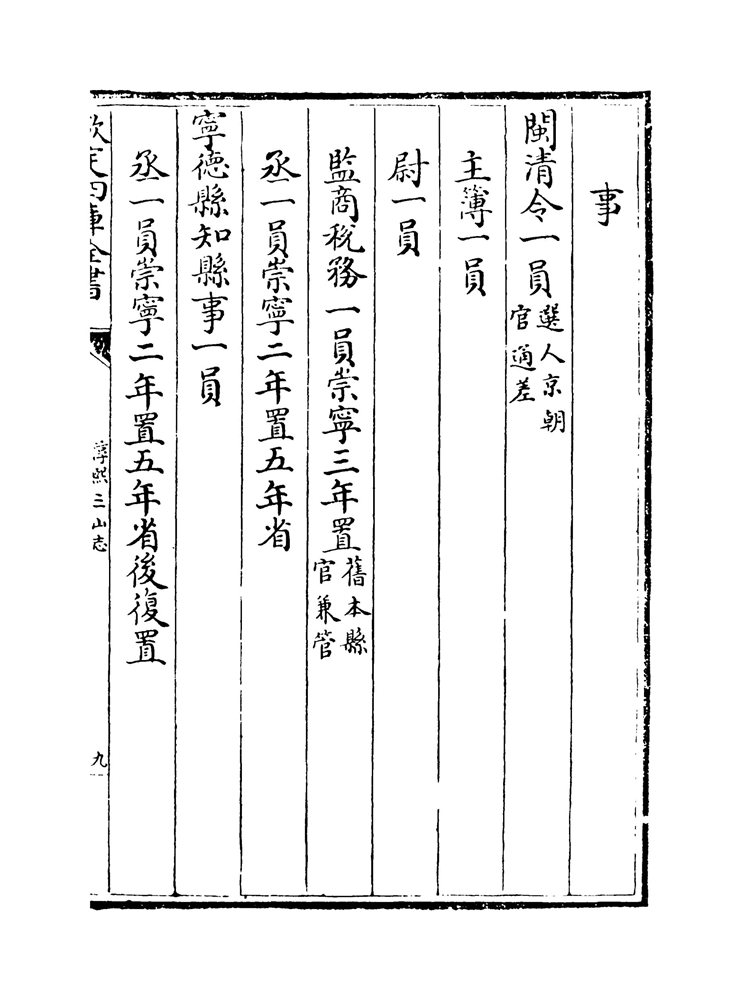 事
閩清令一員選人京朝官通差
主簿一員
尉一員
監商稅務一員崇寧三年置舊本縣官兼管
丞一員崇寧二年置五年省
寧德縣知縣事一員
丞一員崇寧二年置五年省後復置
欽定四庫全書
淳熙三山志
九